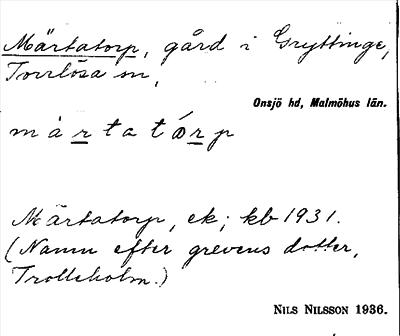 Märtatorp, gård i Gryttinge,
Torrlösa sn,
Onsjö hd, Malmöhus län.
mærtatǿrp
Märtatorp, ek; kb 1931.
(Namn efter grevens dotter,
Trolleholm.)
NILS NILSSON 1936.